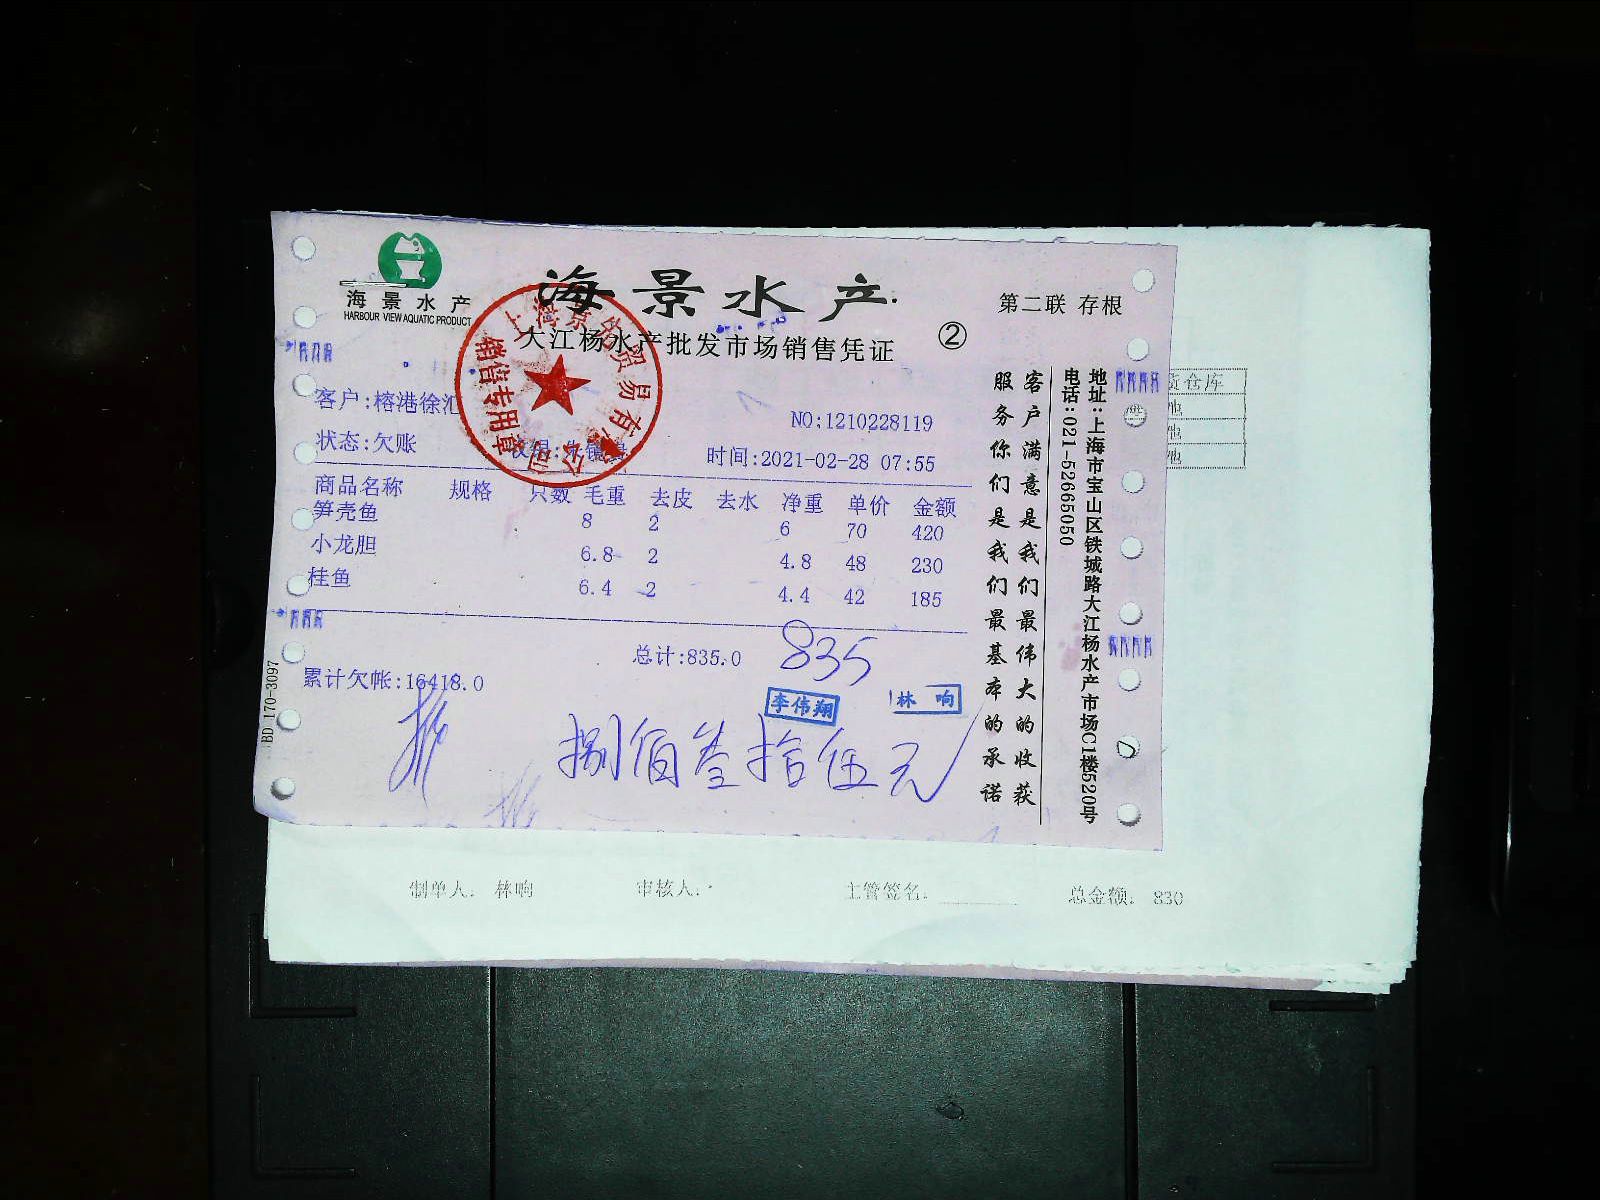 海景水产
HARBOUR VIEW AQUATIC PRODUCT
海景水产
大江杨水产批发市场销售凭证
②
第二联 存根
上海景 贸易有 公司
销售专用章
客户:榕港徐汇
NO:1210228119
状态:欠账
时间:2021-02-28 07:55
商品名称 规格 只数 毛重 去皮 去水 净重 单价 金额
笋壳鱼 8 2 6 70 420
小龙胆 6.8 2 4.8 48 230
桂鱼 6.4 2 4.4 42 185
总计:835.0
835
累计欠帐:16418.0
李伟翔
林 响
捌佰叁拾伍元
客户满意是我们最伟大的收获
服务你们是我们最基本的承诺
地址:上海市宝山区铁城路大江杨水产市场C1楼520号
电话:021-52665050
BD 170-3097
仓库
地
地
地
制单人: 林响
审核人:
主管签名:
总金额: 830